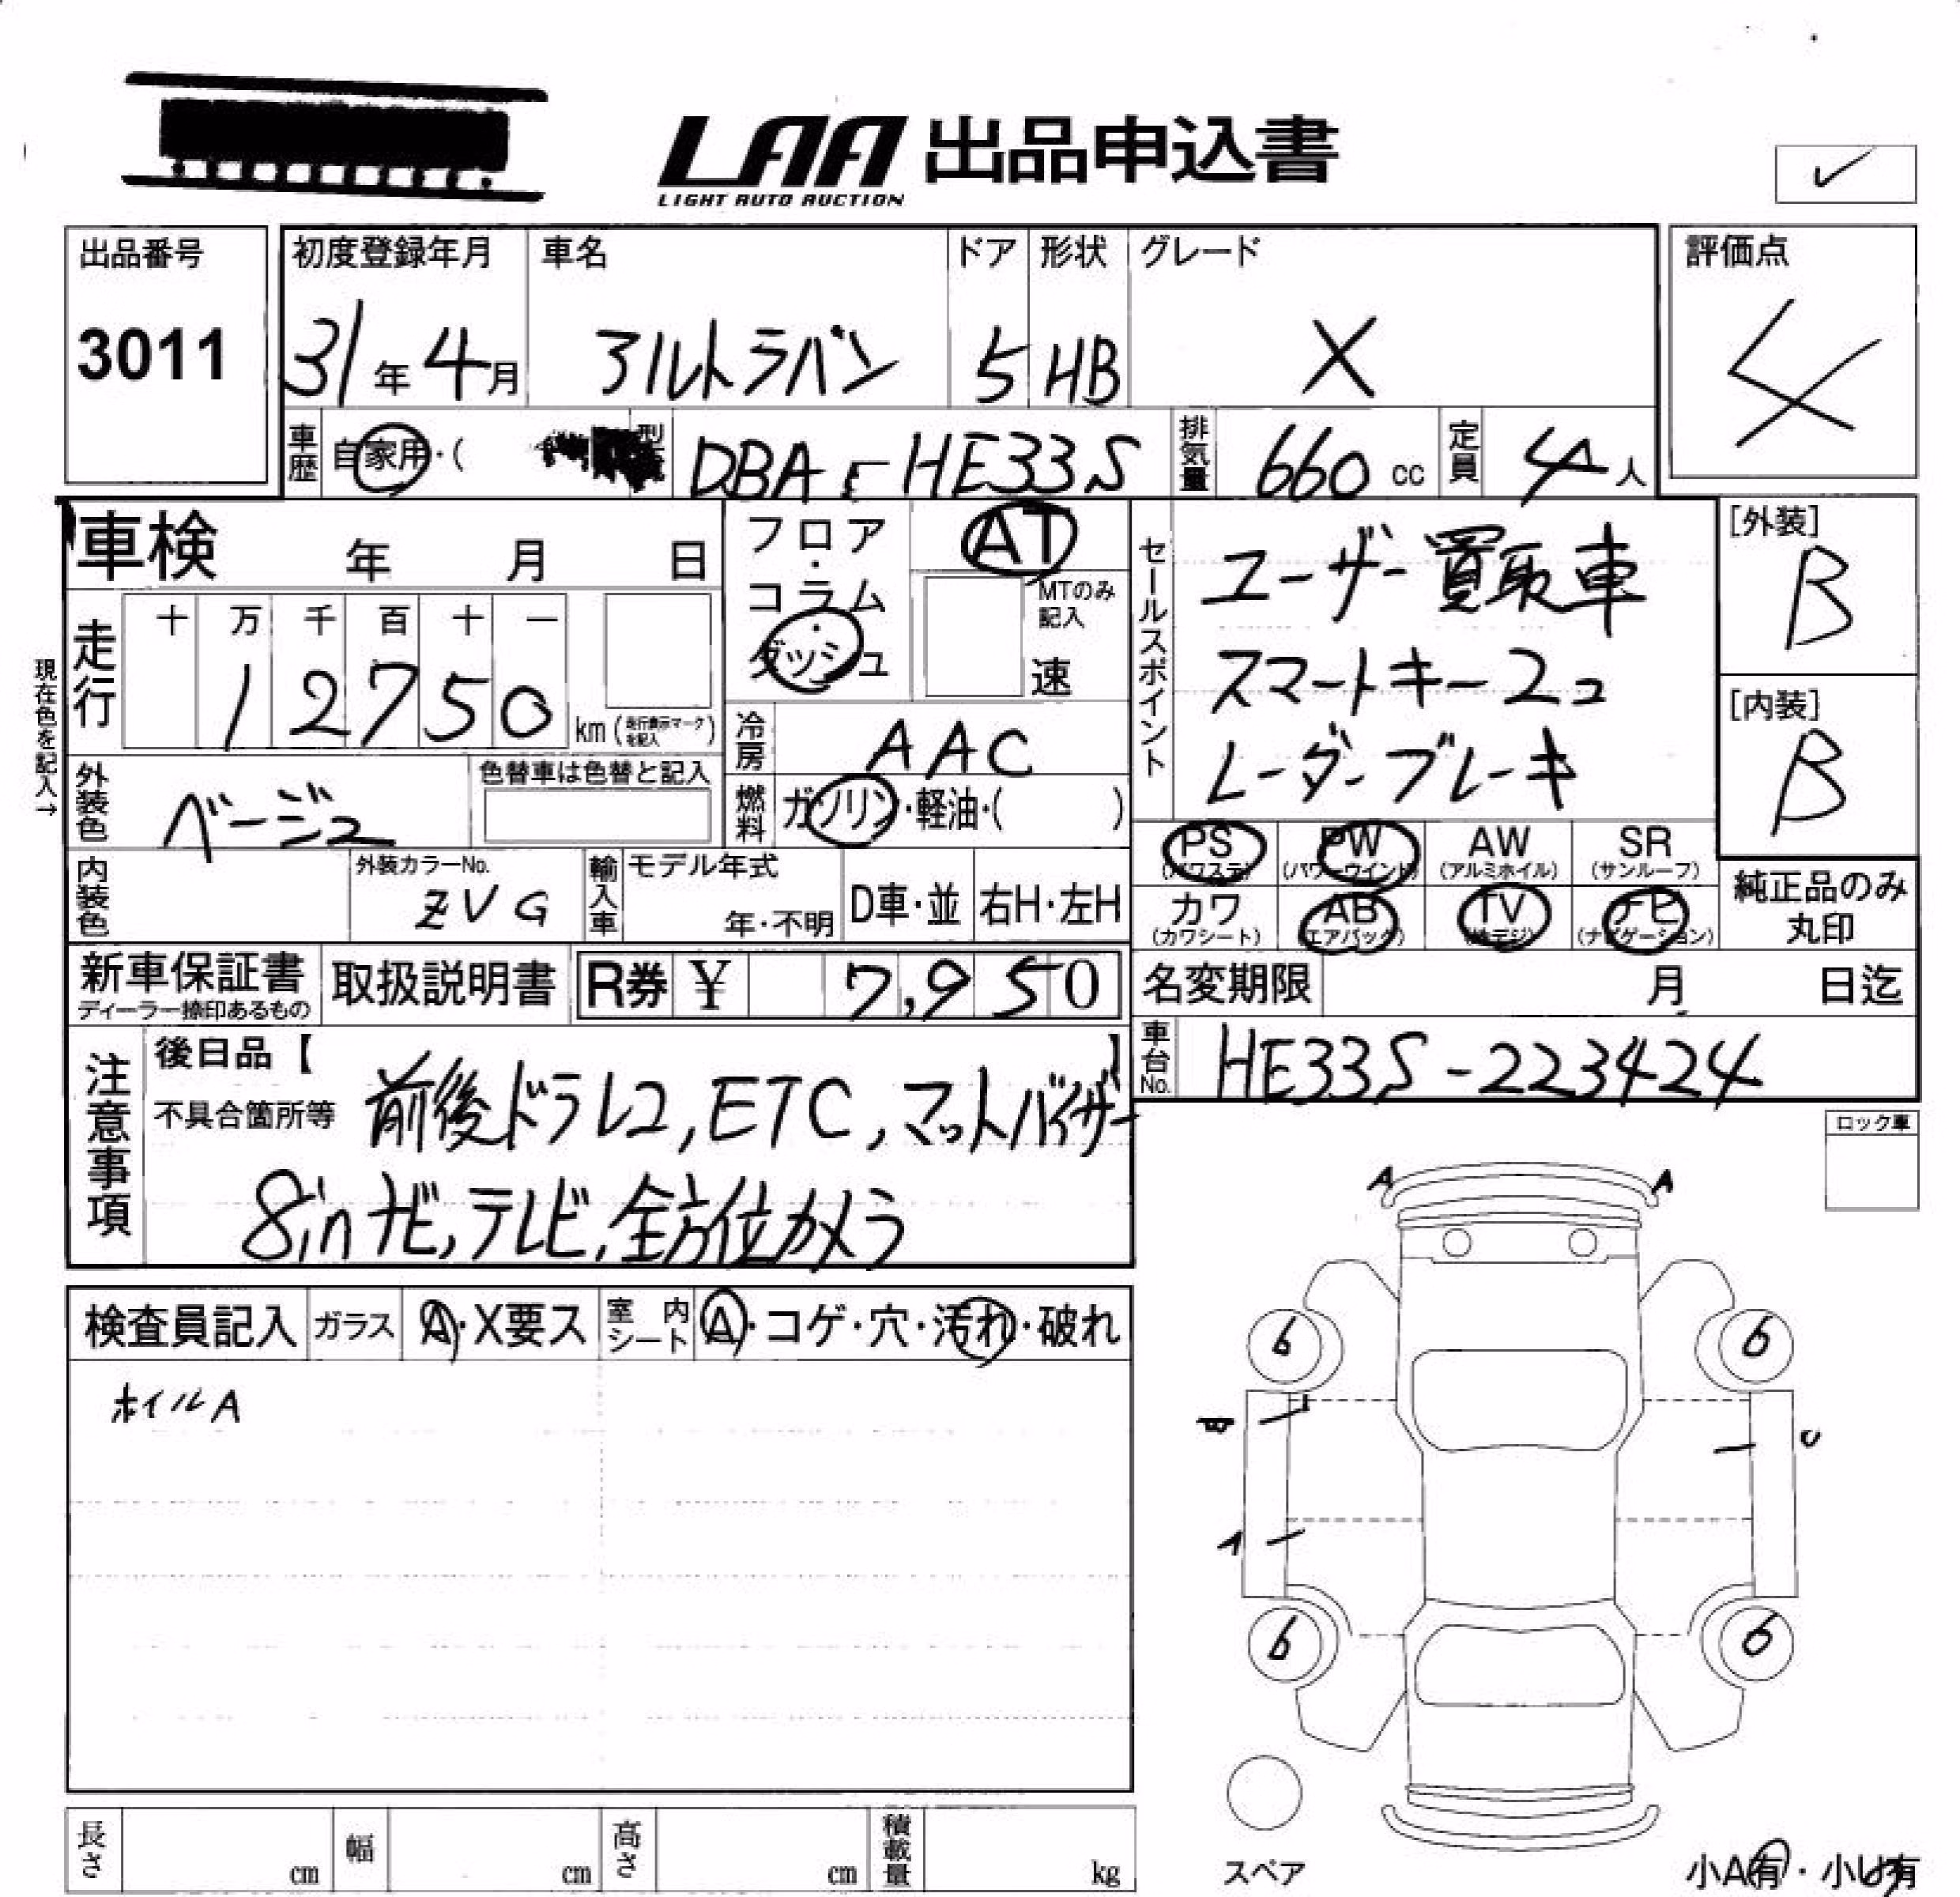 LAA 出品申込書
LIGHT AUTO AUCTION
出品番号
3011
初度登録年月
31年4月
車名
アルトラパン
ドア
5
形状
HB
グレード
X
評価点
4
車歴 自家用・(
DBA-HE33S
排気量 660 cc
定員 4人
車検 年 月 日
フロア・コラム・ダッシュ
AT
MTのみ記入
速
セールスポイント
ユーザー買取車
スマートキー2コ
レーダーブレーキ
[外装]
B
[内装]
B
現在色を記入→
走行
十 万 千 百 十 一
1 2 7 5 0
km (走行表示マークを記入)
冷房 AAC
外装色 ベージュ
色替車は色替と記入
燃料 ガソリン・軽油・( )
PS (パワステ)
PW (パワーウインド)
AW (アルミホイル)
SR (サンルーフ)
カワ (カワシート)
AB (エアバック)
TV (地デジ)
ナビ (ナビゲーション)
純正品のみ
丸印
内装色
外装カラーNo.
ZVG
輸入車
モデル年式
年・不明
D車・並
右H・左H
新車保証書
ディーラー捺印あるもの
取扱説明書
R券 ¥ 7,950
名変期限 月 日迄
車台No. HE33S-223424
注意事項
後日品【 】
不具合箇所等
前後ドラレコ,ETC,マットバイザー
8inナビ,テレビ,全方位カメラ
ロック車
検査員記入
ガラス A・X要ス
室内シート A・コゲ・穴・汚れ・破れ
ホイルA
A A
6 6
U
6 6
スペア
小A有・小U有
長さ cm
幅 cm
高さ cm
積載量 kg